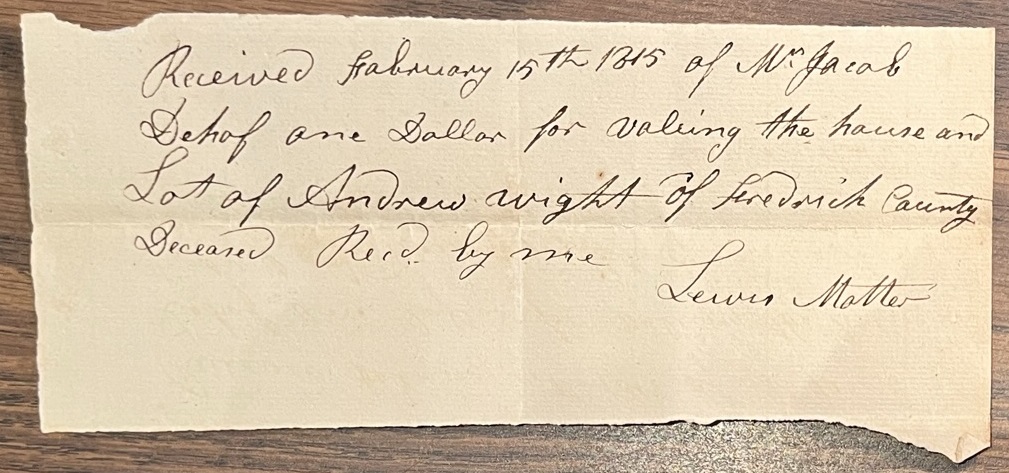 Received February 15th 1815 of Mr. Jacob
Dehof one Dollar for valuing the house and
Lot of Andrew wight of Fredrick County
Deceased Recd. by me
Lewis Motter